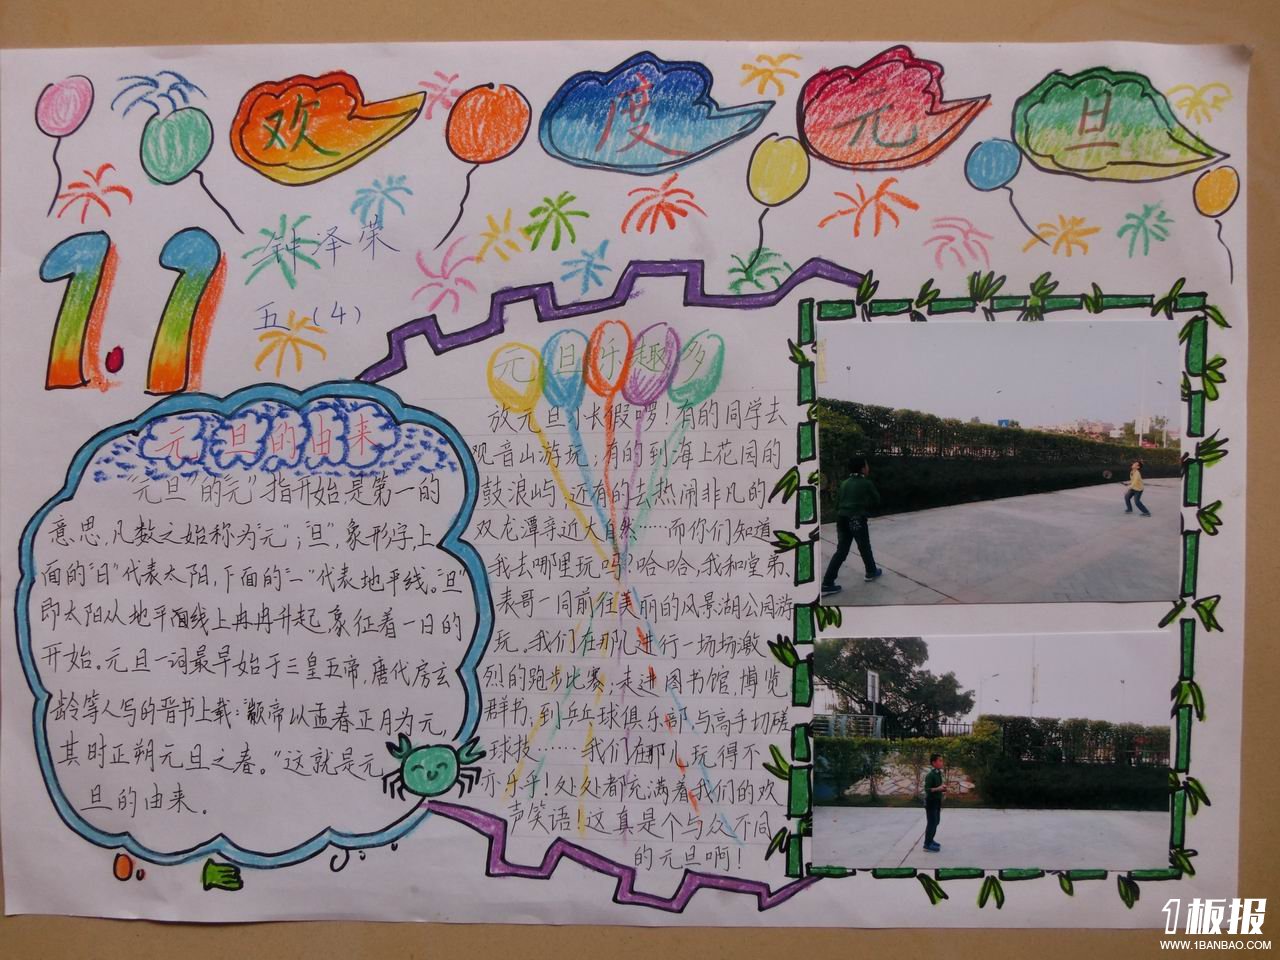 欢度元旦
1.1
钟泽荣
五（4）
元旦的由来
“元旦”的“元”指开始,是第一的
意思,凡数之始称为“元”;“旦”,象形字,上
面的“日”代表太阳,下面的“一”代表地平线。“旦”
即太阳从地平面线上冉冉升起,象征着一日的
开始。元旦一词最早始于三皇五帝,唐代房玄
龄等人写的晋书上载:颛帝以孟春正月为元,
其时正朔元旦之春。”这就是元
旦的由来。
元旦乐趣多
放元旦小长假啰!有的同学去
观音山游玩;有的到海上花园的
鼓浪屿;还有的去热闹非凡的
双龙潭亲近大自然……而你们知道
我去哪里玩吗?哈哈,我和堂弟、
表哥一同前往美丽的风景湖公园游
玩。我们在那儿进行一场场激
烈的跑步比赛;走进图书馆,博览
群书;到乒乓球俱乐部与高手切磋
球技……我们在那儿玩得不
亦乐乎!处处都充满着我们的欢
声笑语!这真是个与众不同
的元旦啊!
1板报
WWW.1BANBAO.COM